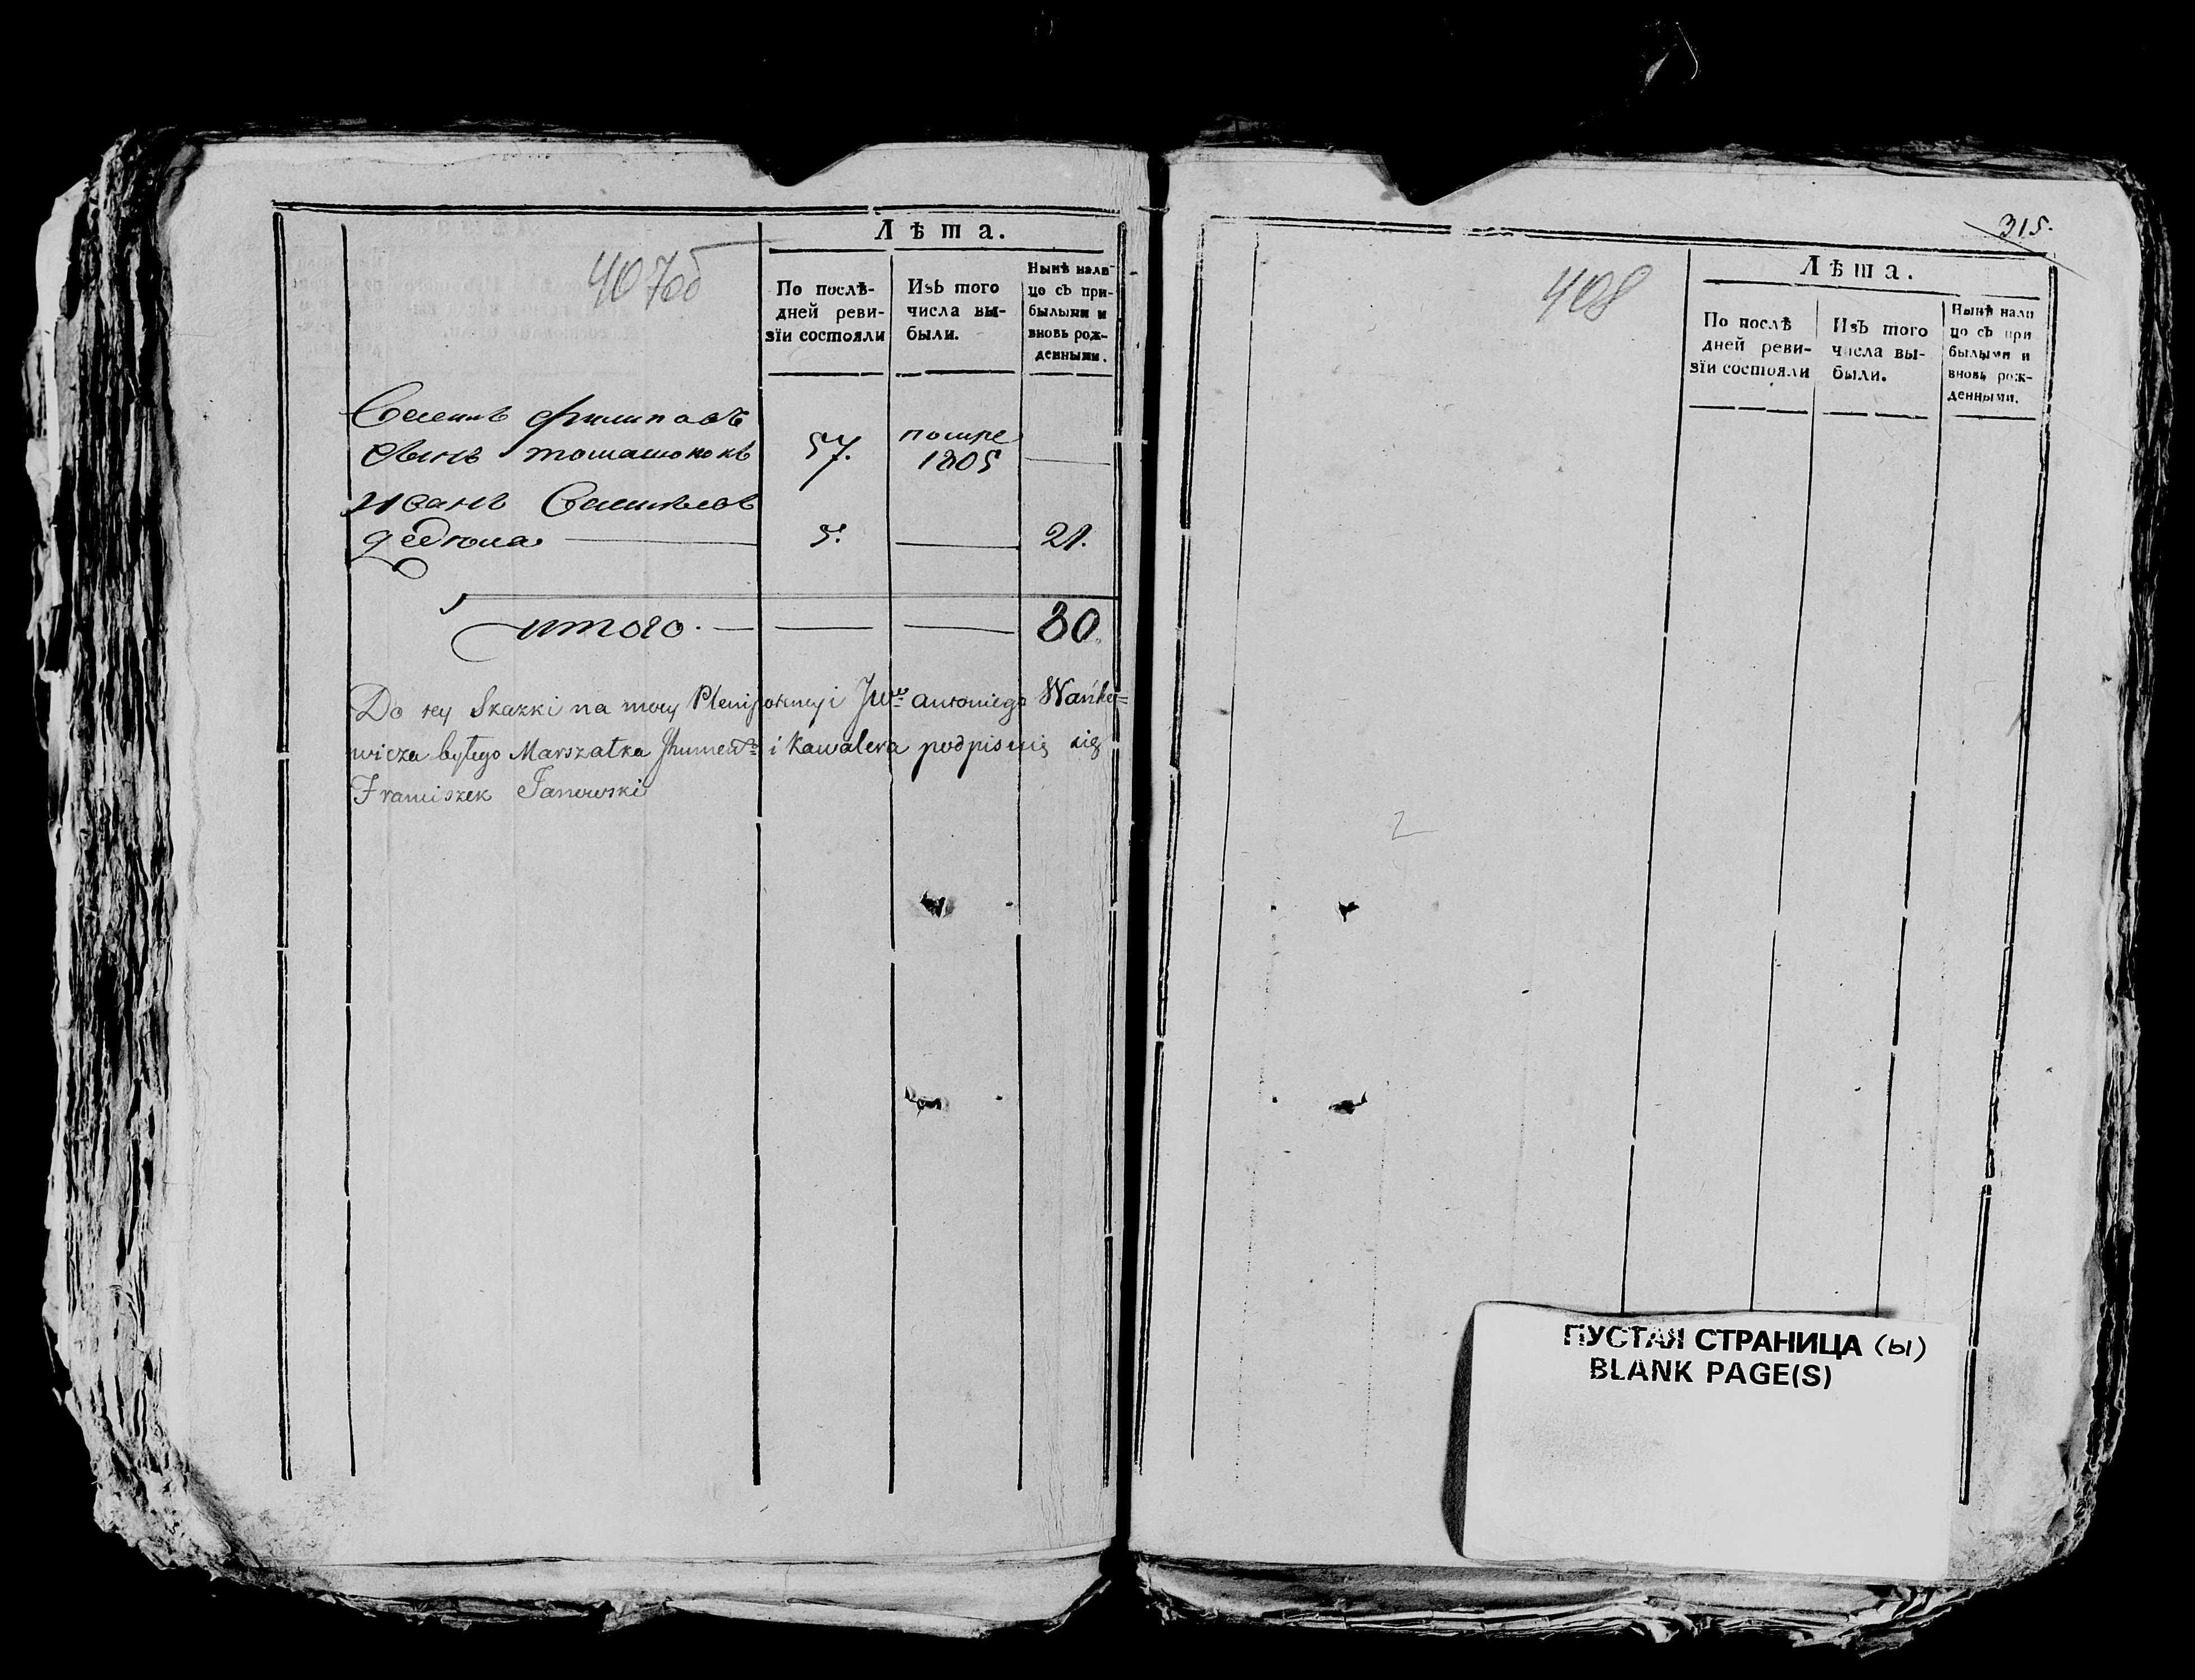 407об
Лѣта.
По послѣ-
дней реви-
зїи состояли
Изъ того
числа вы-
были.
Нынѣ нали-
цо съ при-
былыми и
вновь рож-
денными.
филипавъ
сынъ 57. помре
1805
Иванъ
5. 21.
итого. 80.
Do tey Skazki na mocy Plenipotencyi JW Antoniego Wańko=
wicza byłego Marszałka Ihumen i Kawalera podpisuię się
Franciszek Janowski
315.
408
Лѣта.
По послѣ
дней реви-
зїи состояли
Изъ того
числа вы-
были.
Нынѣ нали
цо съ при
былыми и
вновь рож-
денными.
2
ПУСТАЯ СТРАНИЦА (Ы)
BLANK PAGE(S)